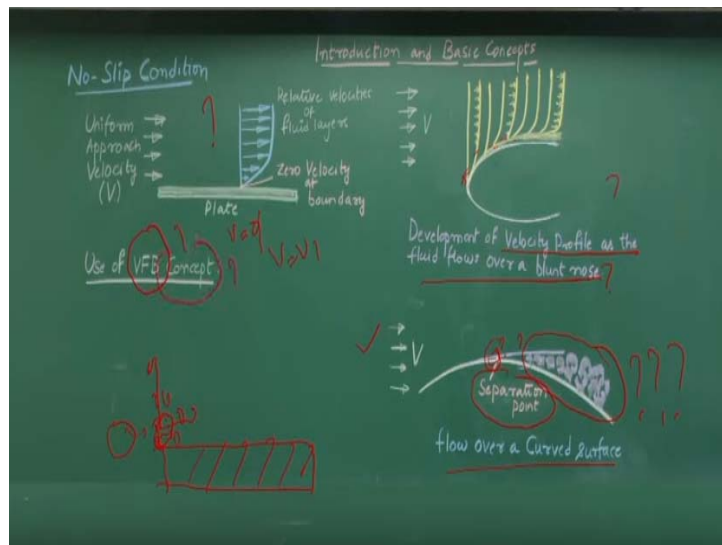 Introduction and Basic Concepts
No-Slip Condition
Uniform
Approach
Velocity
(V)
?
Relative velocities
of
fluid layers
Zero Velocity
at
boundary
Plate
V
?
Development of Velocity Profile as the
fluid flows over a blunt nose?
Use of VFB Concept
?
?
V
Separation
point
???
flow over a Curved Surface